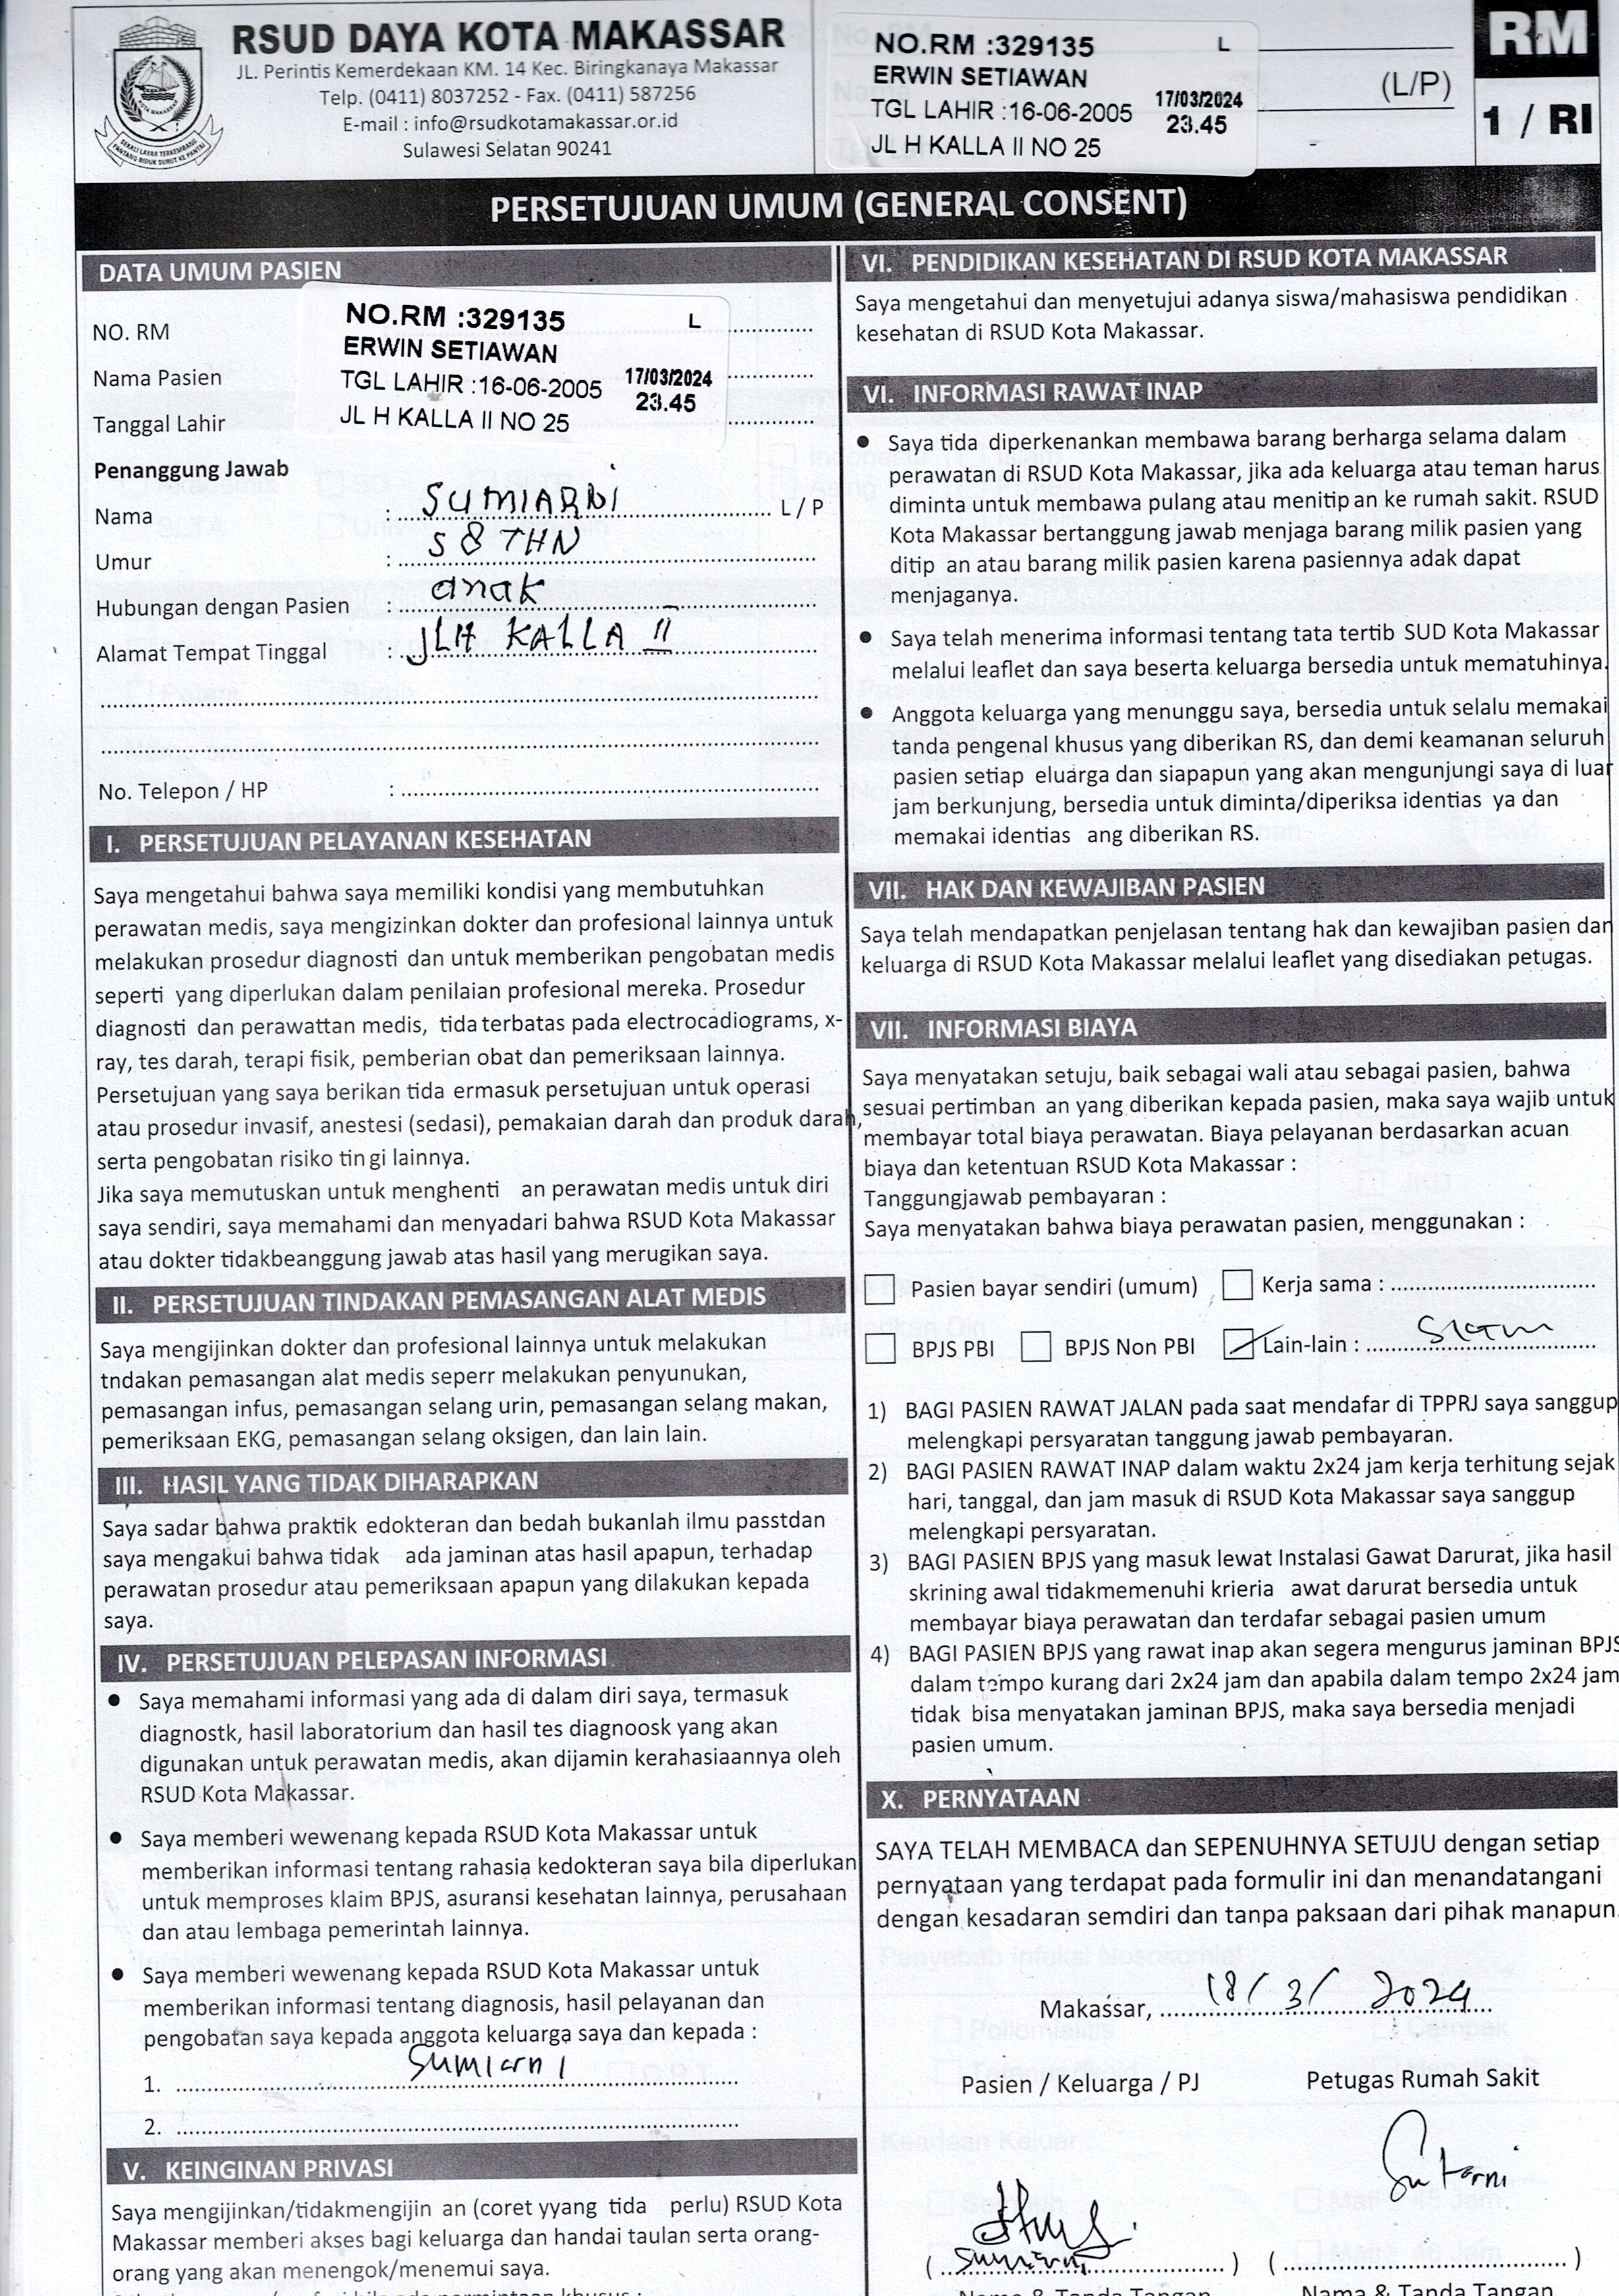 RSUD DAYA KOTA MAKASSAR
JL. Perintis Kemerdekaan KM. 14 Kec. Biringkanaya Makassar
Telp. (0411) 8037252 - Fax. (0411) 587256
E-mail : info@rsudkotamakassar.or.id
Sulawesi Selatan 90241
NO.RM :329135 L
ERWIN SETIAWAN
TGL LAHIR :16-06-2005 17/03/2024
23.45
JL H KALLA II NO 25
(L/P)
RM
1 / RI
PERSETUJUAN UMUM (GENERAL CONSENT)
DATA UMUM PASIEN
NO. RM
Nama Pasien
Tanggal Lahir
NO.RM :329135 L
ERWIN SETIAWAN
TGL LAHIR :16-06-2005 17/03/2024
23.45
JL H KALLA II NO 25
Penanggung Jawab
Nama : SUMIARNI L / P
Umur : 58 THN
Hubungan dengan Pasien : anak
Alamat Tempat Tinggal : JLH KALLA II
No. Telepon / HP :
I. PERSETUJUAN PELAYANAN KESEHATAN
Saya mengetahui bahwa saya memiliki kondisi yang membutuhkan
perawatan medis, saya mengizinkan dokter dan profesional lainnya untuk
melakukan prosedur diagnosti dan untuk memberikan pengobatan medis
seperti yang diperlukan dalam penilaian profesional mereka. Prosedur
diagnosti dan perawattan medis, tida terbatas pada electrocadiograms, x-
ray, tes darah, terapi fisik, pemberian obat dan pemeriksaan lainnya.
Persetujuan yang saya berikan tida ermasuk persetujuan untuk operasi
atau prosedur invasif, anestesi (sedasi), pemakaian darah dan produk darah,
serta pengobatan risiko tin gi lainnya.
Jika saya memutuskan untuk menghenti an perawatan medis untuk diri
saya sendiri, saya memahami dan menyadari bahwa RSUD Kota Makassar
atau dokter tidakbeanggung jawab atas hasil yang merugikan saya.
II. PERSETUJUAN TINDAKAN PEMASANGAN ALAT MEDIS
Saya mengijinkan dokter dan profesional lainnya untuk melakukan
tndakan pemasangan alat medis seperr melakukan penyunukan,
pemasangan infus, pemasangan selang urin, pemasangan selang makan,
pemeriksaan EKG, pemasangan selang oksigen, dan lain lain.
III. HASIL YANG TIDAK DIHARAPKAN
Saya sadar bahwa praktik edokteran dan bedah bukanlah ilmu passtdan
saya mengakui bahwa tidak ada jaminan atas hasil apapun, terhadap
perawatan prosedur atau pemeriksaan apapun yang dilakukan kepada
saya.
IV. PERSETUJUAN PELEPASAN INFORMASI
• Saya memahami informasi yang ada di dalam diri saya, termasuk
diagnostk, hasil laboratorium dan hasil tes diagnoosk yang akan
digunakan untuk perawatan medis, akan dijamin kerahasiaannya oleh
RSUD Kota Makassar.
• Saya memberi wewenang kepada RSUD Kota Makassar untuk
memberikan informasi tentang rahasia kedokteran saya bila diperlukan
untuk memproses klaim BPJS, asuransi kesehatan lainnya, perusahaan
dan atau lembaga pemerintah lainnya.
• Saya memberi wewenang kepada RSUD Kota Makassar untuk
memberikan informasi tentang diagnosis, hasil pelayanan dan
pengobatan saya kepada anggota keluarga saya dan kepada :
1. Sumiarni
2.
V. KEINGINAN PRIVASI
Saya mengijinkan/tidakmengijin an (coret yyang tida perlu) RSUD Kota
Makassar memberi akses bagi keluarga dan handai taulan serta orang-
orang yang akan menengok/menemui saya.
VI. PENDIDIKAN KESEHATAN DI RSUD KOTA MAKASSAR
Saya mengetahui dan menyetujui adanya siswa/mahasiswa pendidikan
kesehatan di RSUD Kota Makassar.
VI. INFORMASI RAWAT INAP
• Saya tida diperkenankan membawa barang berharga selama dalam
perawatan di RSUD Kota Makassar, jika ada keluarga atau teman harus
diminta untuk membawa pulang atau menitip an ke rumah sakit. RSUD
Kota Makassar bertanggung jawab menjaga barang milik pasien yang
ditip an atau barang milik pasien karena pasiennya adak dapat
menjaganya.
• Saya telah menerima informasi tentang tata tertib SUD Kota Makassar
melalui leaflet dan saya beserta keluarga bersedia untuk mematuhinya.
• Anggota keluarga yang menunggu saya, bersedia untuk selalu memakai
tanda pengenal khusus yang diberikan RS, dan demi keamanan seluruh
pasien setiap eluarga dan siapapun yang akan mengunjungi saya di luar
jam berkunjung, bersedia untuk diminta/diperiksa identias ya dan
memakai identias ang diberikan RS.
VII. HAK DAN KEWAJIBAN PASIEN
Saya telah mendapatkan penjelasan tentang hak dan kewajiban pasien dan
keluarga di RSUD Kota Makassar melalui leaflet yang disediakan petugas.
VII. INFORMASI BIAYA
Saya menyatakan setuju, baik sebagai wali atau sebagai pasien, bahwa
sesuai pertimban an yang diberikan kepada pasien, maka saya wajib untuk
membayar total biaya perawatan. Biaya pelayanan berdasarkan acuan
biaya dan ketentuan RSUD Kota Makassar :
Tanggungjawab pembayaran :
Saya menyatakan bahwa biaya perawatan pasien, menggunakan :
Pasien bayar sendiri (umum) Kerja sama :
BPJS PBI BPJS Non PBI Lain-lain :
1) BAGI PASIEN RAWAT JALAN pada saat mendafar di TPPRJ saya sanggup
melengkapi persyaratan tanggung jawab pembayaran.
2) BAGI PASIEN RAWAT INAP dalam waktu 2x24 jam kerja terhitung sejak
hari, tanggal, dan jam masuk di RSUD Kota Makassar saya sanggup
melengkapi persyaratan.
3) BAGI PASIEN BPJS yang masuk lewat Instalasi Gawat Darurat, jika hasil
skrining awal tidakmemenuhi krieria awat darurat bersedia untuk
membayar biaya perawatan dan terdafar sebagai pasien umum
4) BAGI PASIEN BPJS yang rawat inap akan segera mengurus jaminan BPJS
dalam tempo kurang dari 2x24 jam dan apabila dalam tempo 2x24 jam
tidak bisa menyatakan jaminan BPJS, maka saya bersedia menjadi
pasien umum.
X. PERNYATAAN
SAYA TELAH MEMBACA dan SEPENUHNYA SETUJU dengan setiap
pernyataan yang terdapat pada formulir ini dan menandatangani
dengan kesadaran semdiri dan tanpa paksaan dari pihak manapun.
Makassar, 18/3/2024
Pasien / Keluarga / PJ Petugas Rumah Sakit
(Sumiarni) ( )
Nama & Tanda Tangan Nama & Tanda Tangan